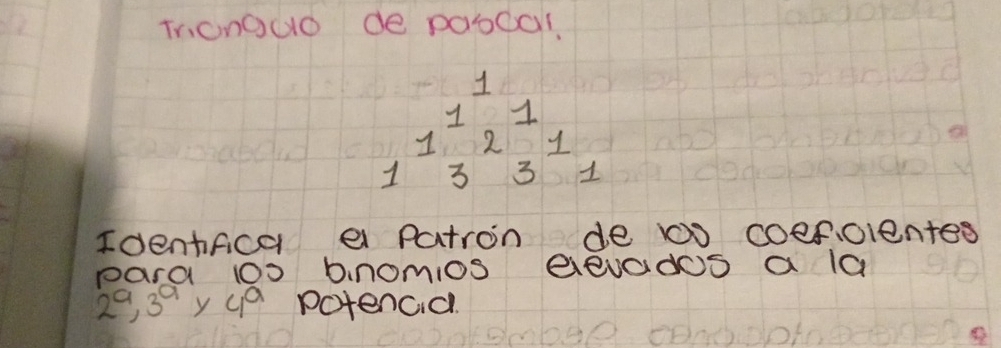 Triangulo de pascal.
1
1 1
1 2 1
1 3 3 1
Identifica el Patrón de los coeficientes
para los binomios elevados a la
2ª, 3ª y 4ª potencia.